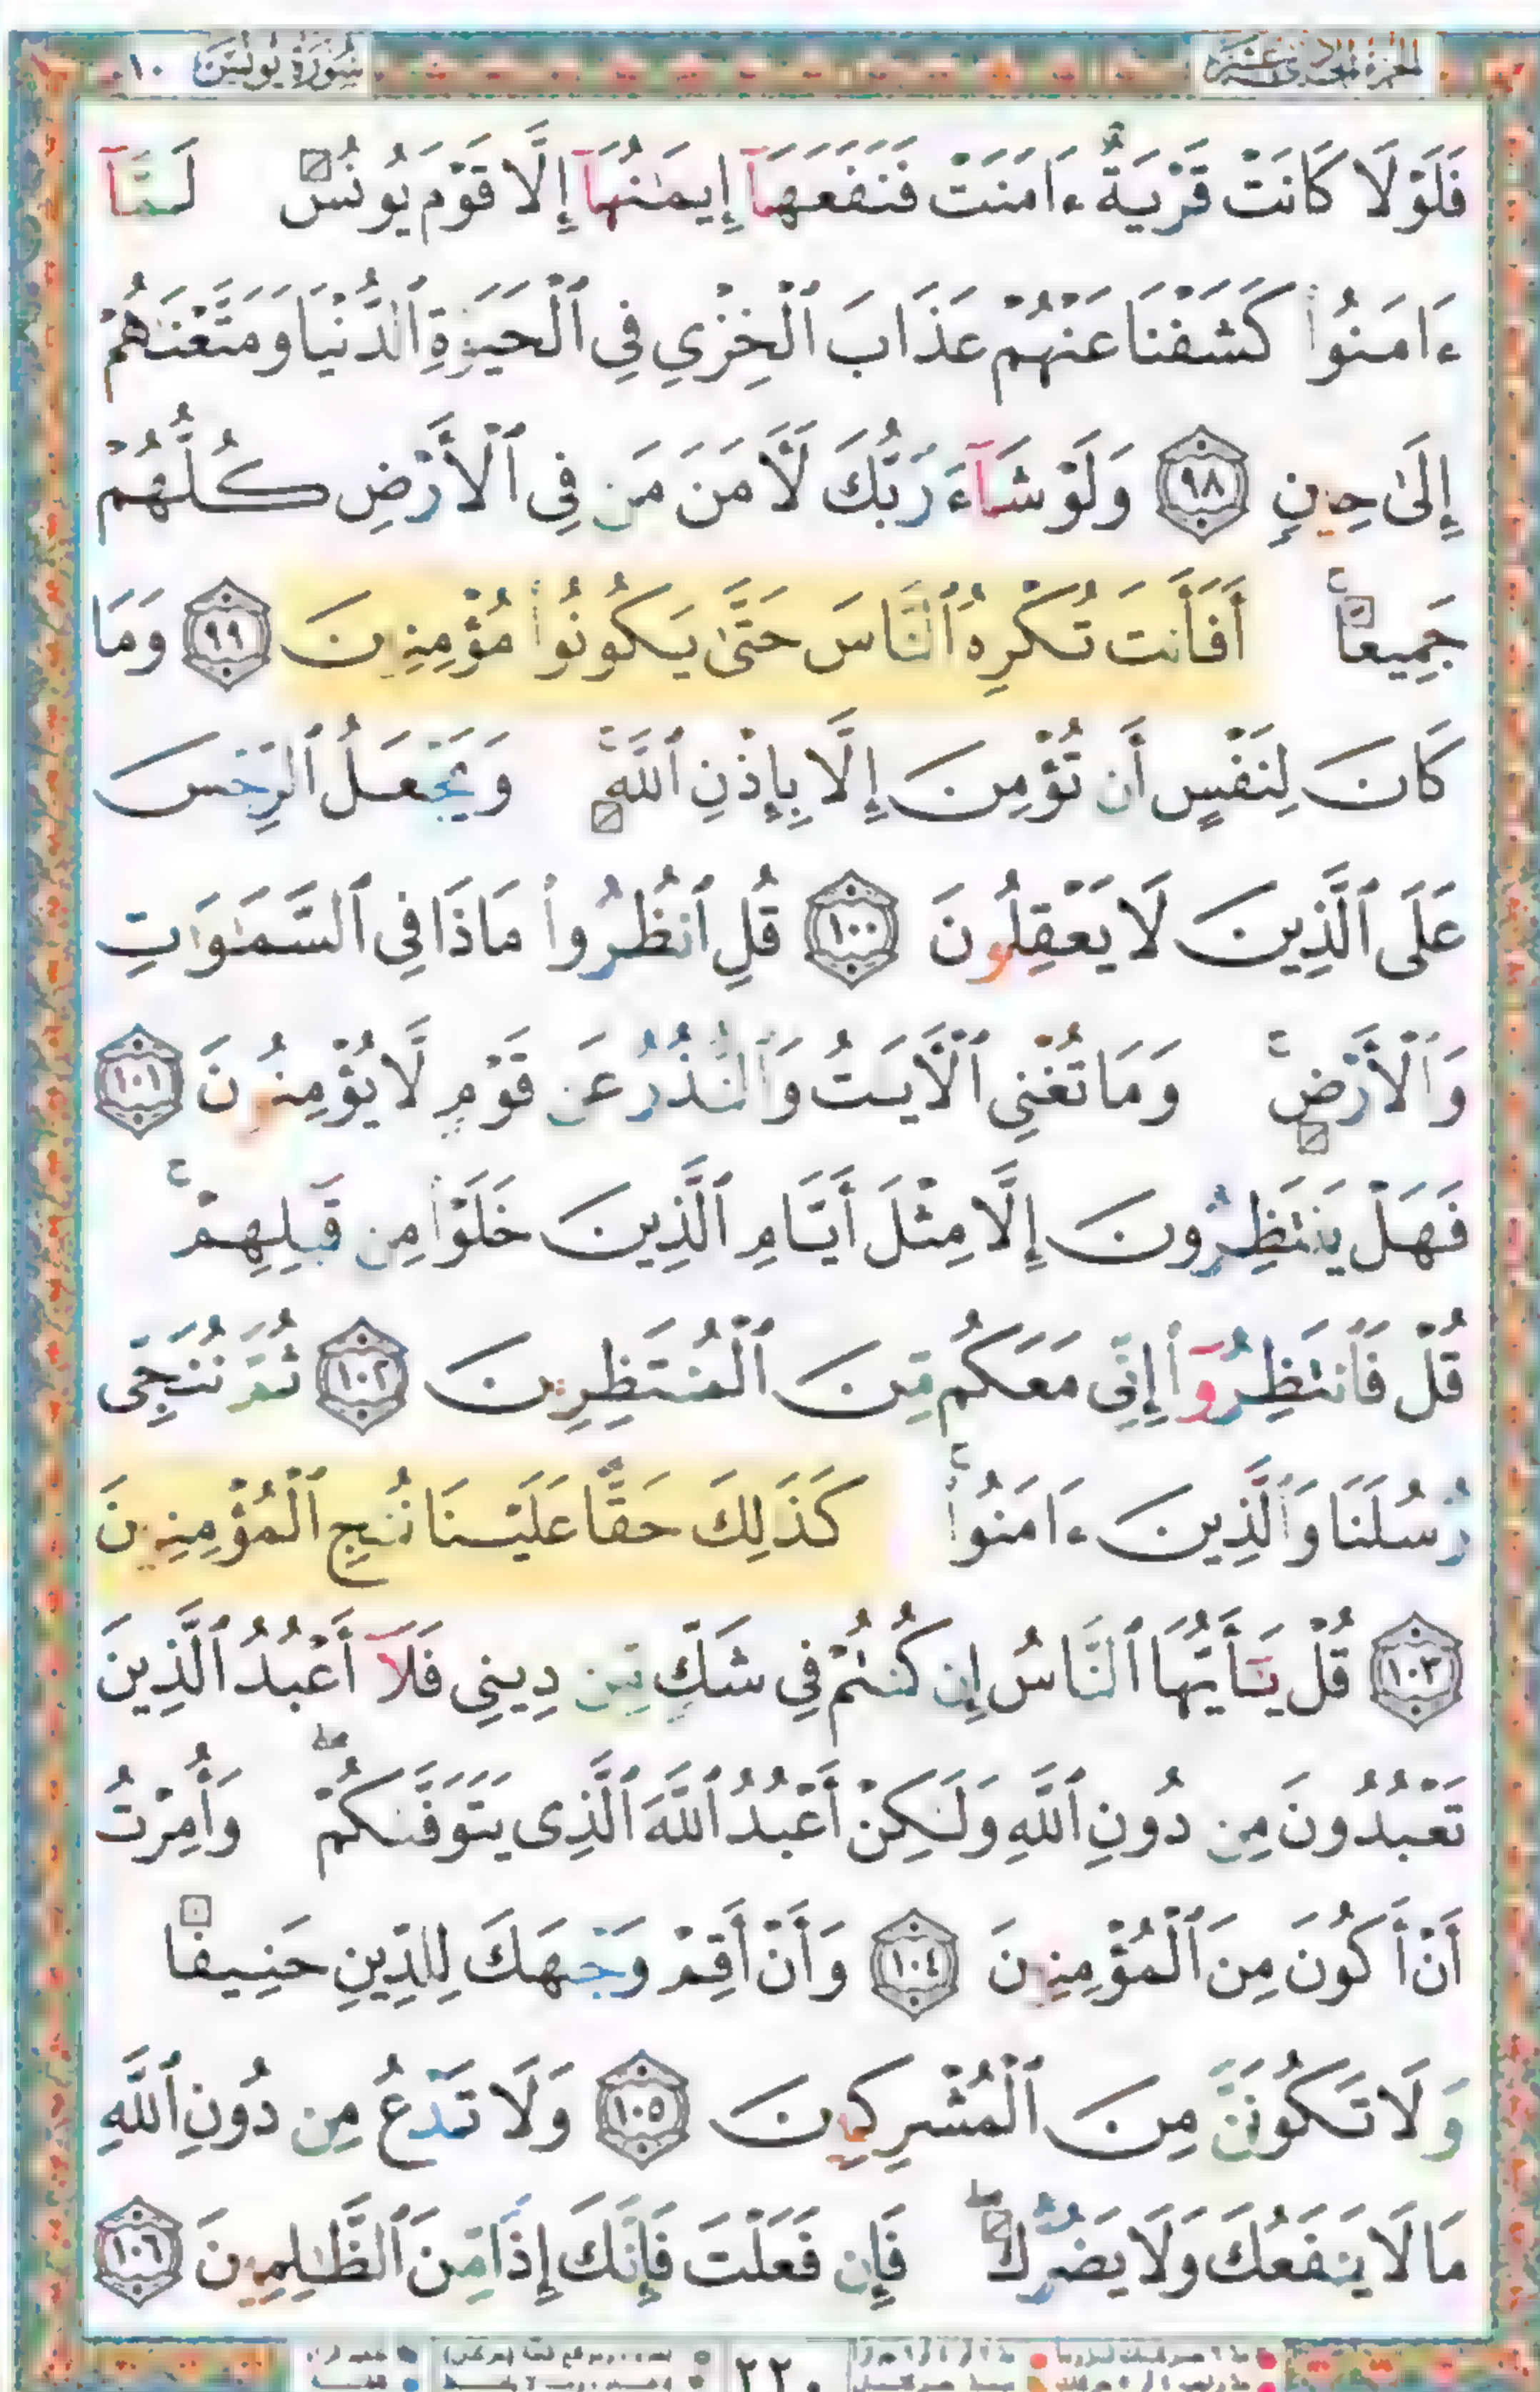 سُورَةُ يُونُسَ ١٠
الجزء الحادي عشر
فَلَوْلَا كَانَتْ قَرْيَةٌ ءَامَنَتْ فَنَفَعَهَآ إِيمَٰنُهَآ إِلَّا قَوْمَ يُونُسَ لَمَّآ
ءَامَنُوا۟ كَشَفْنَا عَنْهُمْ عَذَابَ ٱلْخِزْىِ فِى ٱلْحَيَوٰةِ ٱلدُّنْيَا وَمَتَّعْنَٰهُمْ
إِلَىٰ حِينٍ ٩٨ وَلَوْ شَآءَ رَبُّكَ لَـَٔامَنَ مَن فِى ٱلْأَرْضِ كُلُّهُمْ
جَمِيعًا ۚ أَفَأَنتَ تُكْرِهُ ٱلنَّاسَ حَتَّىٰ يَكُونُوا۟ مُؤْمِنِينَ ٩٩ وَمَا
كَانَ لِنَفْسٍ أَن تُؤْمِنَ إِلَّا بِإِذْنِ ٱللَّهِ ۚ وَيَجْعَلُ ٱلرِّجْسَ
عَلَى ٱلَّذِينَ لَا يَعْقِلُونَ ١٠٠ قُلِ ٱنظُرُوا۟ مَاذَا فِى ٱلسَّمَٰوَٰتِ
وَٱلْأَرْضِ ۚ وَمَا تُغْنِى ٱلْـَٔايَٰتُ وَٱلنُّذُرُ عَن قَوْمٍ لَّا يُؤْمِنُونَ ١٠١
فَهَلْ يَنتَظِرُونَ إِلَّا مِثْلَ أَيَّامِ ٱلَّذِينَ خَلَوْا۟ مِن قَبْلِهِمْ ۚ
قُلْ فَٱنتَظِرُوٓا۟ إِنِّى مَعَكُم مِّنَ ٱلْمُنتَظِرِينَ ١٠٢ ثُمَّ نُنَجِّى
رُسُلَنَا وَٱلَّذِينَ ءَامَنُوا۟ ۚ كَذَٰلِكَ حَقًّا عَلَيْنَا نُنجِ ٱلْمُؤْمِنِينَ
١٠٣ قُلْ يَٰٓأَيُّهَا ٱلنَّاسُ إِن كُنتُمْ فِى شَكٍّ مِّن دِينِى فَلَآ أَعْبُدُ ٱلَّذِينَ
تَعْبُدُونَ مِن دُونِ ٱللَّهِ وَلَٰكِنْ أَعْبُدُ ٱللَّهَ ٱلَّذِى يَتَوَفَّىٰكُمْ ۖ وَأُمِرْتُ
أَنْ أَكُونَ مِنَ ٱلْمُؤْمِنِينَ ١٠٤ وَأَنْ أَقِمْ وَجْهَكَ لِلدِّينِ حَنِيفًا
وَلَا تَكُونَنَّ مِنَ ٱلْمُشْرِكِينَ ١٠٥ وَلَا تَدْعُ مِن دُونِ ٱللَّهِ
مَا لَا يَنفَعُكَ وَلَا يَضُرُّكَ ۖ فَإِن فَعَلْتَ فَإِنَّكَ إِذًا مِّنَ ٱلظَّٰلِمِينَ ١٠٦
٢٢٠